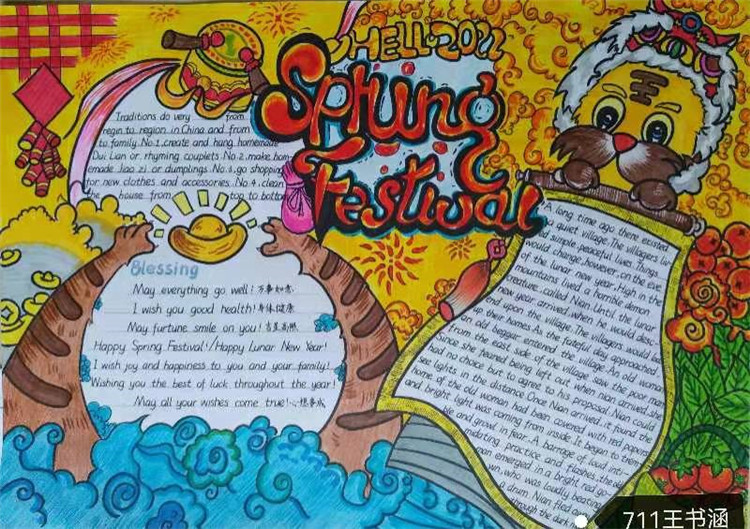 HELL 2022
Spring
Festival
Traditions do very from
regin to region in China and from
to family. No.1, create and hang homemade
Dui Lian or rhyming couplets. No.2. make hom-
emade Jiao zi or dumplings. No.3, go shopping
for new clothes and accessories. No.4. clean
the house from top to bottom
Blessing
May everything go well! 万事如意
I wish you good health! 身体健康
May furtune smile on you! 吉星高照
Happy Spring Festival!/Happy Lunar New Year!
I wish joy and happiness to you and your family!
Wishing you the best of luck throughout the year!
May all your wishes come true! 心想事成
A long time ago there existed
a quiet village. The villagers liv-
ed simple, peaceful lives. Things
would change, however, on the eve
of the lunar new year. High in the
mountains lived a horrible demon
creature called Nian. Until the lunar
new year arrived, when he would desc-
end upon the village. The villagers would be
up ther homes. As the fateful day approached
an old beggar entered the village. An old woman
from the east side of the village saw the poor man
Since she feared being left out when nian arrived, she
had no choice but to agree to his proposal. Nian could
see lights in the distance. Once Nian arrived, it found the
home of the old woman had been covered with red papers
and bright light was coming from inside. It began to trem-
ble and growl in fear. A barrage of loud inti-
midating practice and flashes, the old
man emerged in a bright red go-
wn, who was loudly beating
a drum. Nian fled
through the
711王书涵